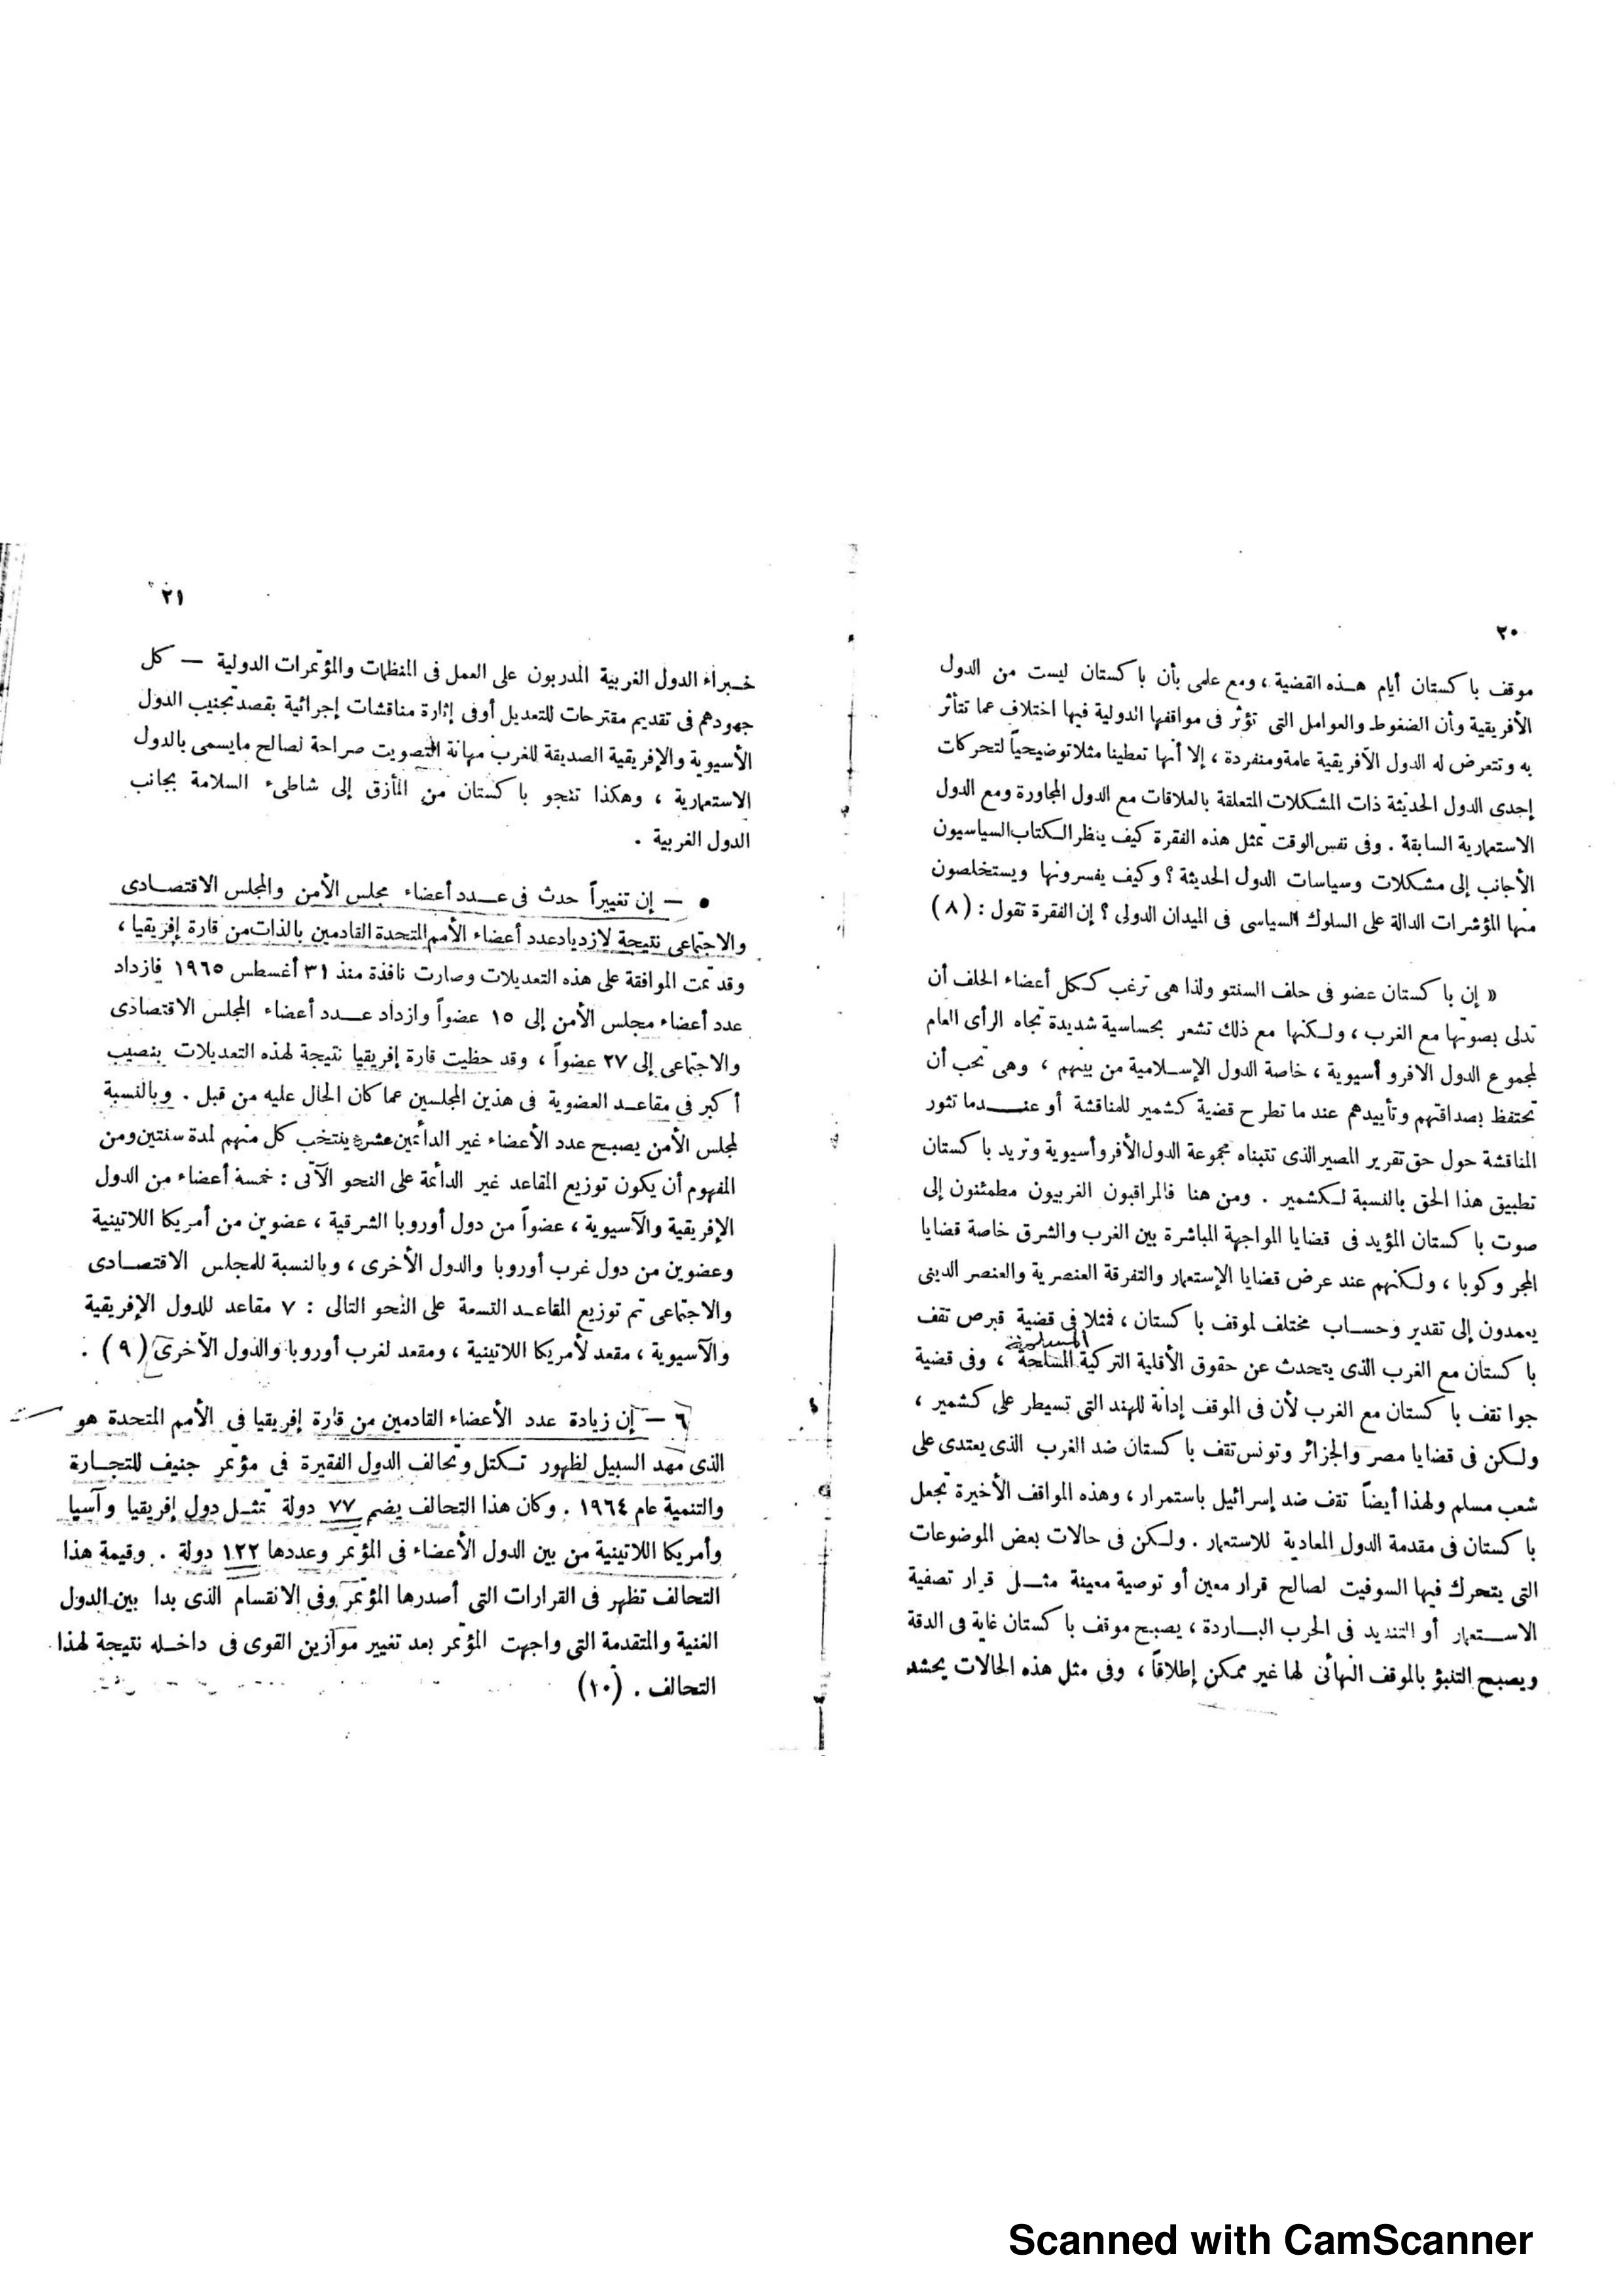 ٢٠
موقف باكستان أيام هــذه القضية ، ومع علمى بأن باكستان ليست من الدول
الأفريقية وأن الضغوط والعوامل التى تؤثر فى مواقفها الدولية فيها اختلاف عما تتأثر
به وتتعرض له الدول الأفريقية عامة ومنفردة ، إلا أنها تعطينا مثلا توضيحياً لتحركات
إحدى الدول الحديثة ذات المشكلات المتعلقة بالعلاقات مع الدول المجاورة ومع الدول
الاستعمارية السابقة . وفى نفس الوقت تمثل هذه الفقرة كيف ينظر الكتاب السياسيون
الأجانب إلى مشكلات وسياسات الدول الحديثة ؟ وكيف يفسرونها ويستخلصون
منها المؤشرات الدالة على السلوك السياسى فى الميدان الدولى ؟ إن الفقرة تقول : ( ٨ )
« إن باكستان عضو فى حلف السنتو ولذا هى ترغب ككل أعضاء الحلف أن
تدلى بصوتها مع الغرب ، ولكنها مع ذلك تشعر بحساسية شديدة تجاه الرأى العام
لمجموع الدول الافرو أسيوية ، خاصة الدول الإسلامية من بينهم ، وهى تحب أن
تحتفظ بصداقتهم وتأييدهم عند ما تطرح قضية كشمير للمناقشة أو عنــدما تثور
المناقشة حول حق تقرير المصير الذى تتبناه مجموعة الدول الأفروأسيوية وتريد باكستان
تطبيق هذا الحق بالنسبة لكشمير . ومن هنا فالمراقبون الغربيون مطمئنون إلى
صوت باكستان المؤيد فى قضايا المواجهة المباشرة بين الغرب والشرق خاصة قضايا
المجر وكوبا ، ولكنهم عند عرض قضايا الإستعمار والتفرقة العنصرية والعنصر الدينى
يعمدون إلى تقدير وحساب مختلف لموقف باكستان ، فمثلا فى قضية قبرص تقف
باكستان مع الغرب الذى يتحدث عن حقوق الأقلية التركية المسلحة ، وفى قضية
جوا تقف باكستان مع الغرب لأن فى الموقف إدانة للهند التى تسيطر على كشمير ،
ولكن فى قضايا مصر والجزائر وتونس تقف باكستان ضد الغرب الذى يعتدى على
شعب مسلم ولهذا أيضاً تقف ضد إسرائيل باستمرار ، وهذه المواقف الأخيرة تجعل
باكستان فى مقدمة الدول المعادية للاستعمار . ولكن فى حالات بعض الموضوعات
التى يتحرك فيها السوفيت لصالح قرار معين أو توصية معينة مثــل قرار تصفية
الاستعمار أو التنديد فى الحرب البــاردة ، يصبح موقف باكستان غاية فى الدقة
ويصبح التنبؤ بالموقف النهائى لها غير ممكن إطلاقاً ، وفى مثل هذه الحالات يحشد
٢١
خــبراء الدول الغربية المدربون على العمل فى المنظمات والمؤتمرات الدولية — كل
جهودهم فى تقديم مقترحات للتعديل أو فى إثارة مناقشات إجرائية بقصد تجنيب الدول
الأسيوية والإفريقية الصديقة للغرب مهانة التصويت صراحة لصالح مايسمى بالدول
الاستعمارية ، وهكذا تنجو باكستان من المأزق إلى شاطىء السلامة بجانب
الدول الغربية .
٥ — إن تغييراً حدث فى عــدد أعضاء مجلس الأمن والمجلس الاقتصــادى
والاجتماعى نتيجة لازدياد عدد أعضاء الأمم المتحدة القادمين بالذات من قارة إفريقيا ،
وقد تمت الموافقة على هذه التعديلات وصارت نافذة منذ ٣١ أغسطس ١٩٦٥ فازداد
عدد أعضاء مجلس الأمن إلى ١٥ عضواً وازداد عــدد أعضاء المجلس الاقتصادى
والاجتماعى إلى ٢٧ عضواً ، وقد حظيت قارة إفريقيا نتيجة لهذه التعديلات بنصيب
أكبر فى مقاعــد العضوية فى هذين المجلسين عما كان الحال عليه من قبل . وبالنسبة
لمجلس الأمن يصبح عدد الأعضاء غير الدائمين عشرة ينتخب كل منهم لمدة سنتين ومن
المفهوم أن يكون توزيع المقاعد غير الدائمة على النحو الآتى : خمسة أعضاء من الدول
الإفريقية والآسيوية ، عضواً من دول أوروبا الشرقية ، عضوين من أمريكا اللاتينية
وعضوين من دول غرب أوروبا والدول الأخرى ، وبالنسبة للمجلس الاقتصــادى
والاجتماعى تم توزيع المقاعــد التسعة على النحو التالى : ٧ مقاعد للدول الإفريقية
والآسيوية ، مقعد لأمريكا اللاتينية ، ومقعد لغرب أوروبا والدول الآخرى ( ٩ ) .
٦ — إن زيادة عدد الأعضاء القادمين من قارة إفريقيا فى الأمم المتحدة هو
الذى مهد السبيل لظهور تكتل وتحالف الدول الفقيرة فى مؤتمر جنيف للتجــارة
والتنمية عام ١٩٦٤ . وكان هذا التحالف يضم ٧٧ دولة تمثــل دول إفريقيا وآسيا
وأمريكا اللاتينية من بين الدول الأعضاء فى المؤتمر وعددها ١٢٢ دولة . وقيمة هذا
التحالف تظهر فى القرارات التى أصدرها المؤتمر وفى الانقسام الذى بدا بين الدول
الغنية والمتقدمة التى واجهت المؤتمر بعد تغيير موازين القوى فى داخــله نتيجة لهذا
التحالف . (١٠)
Scanned with CamScanner